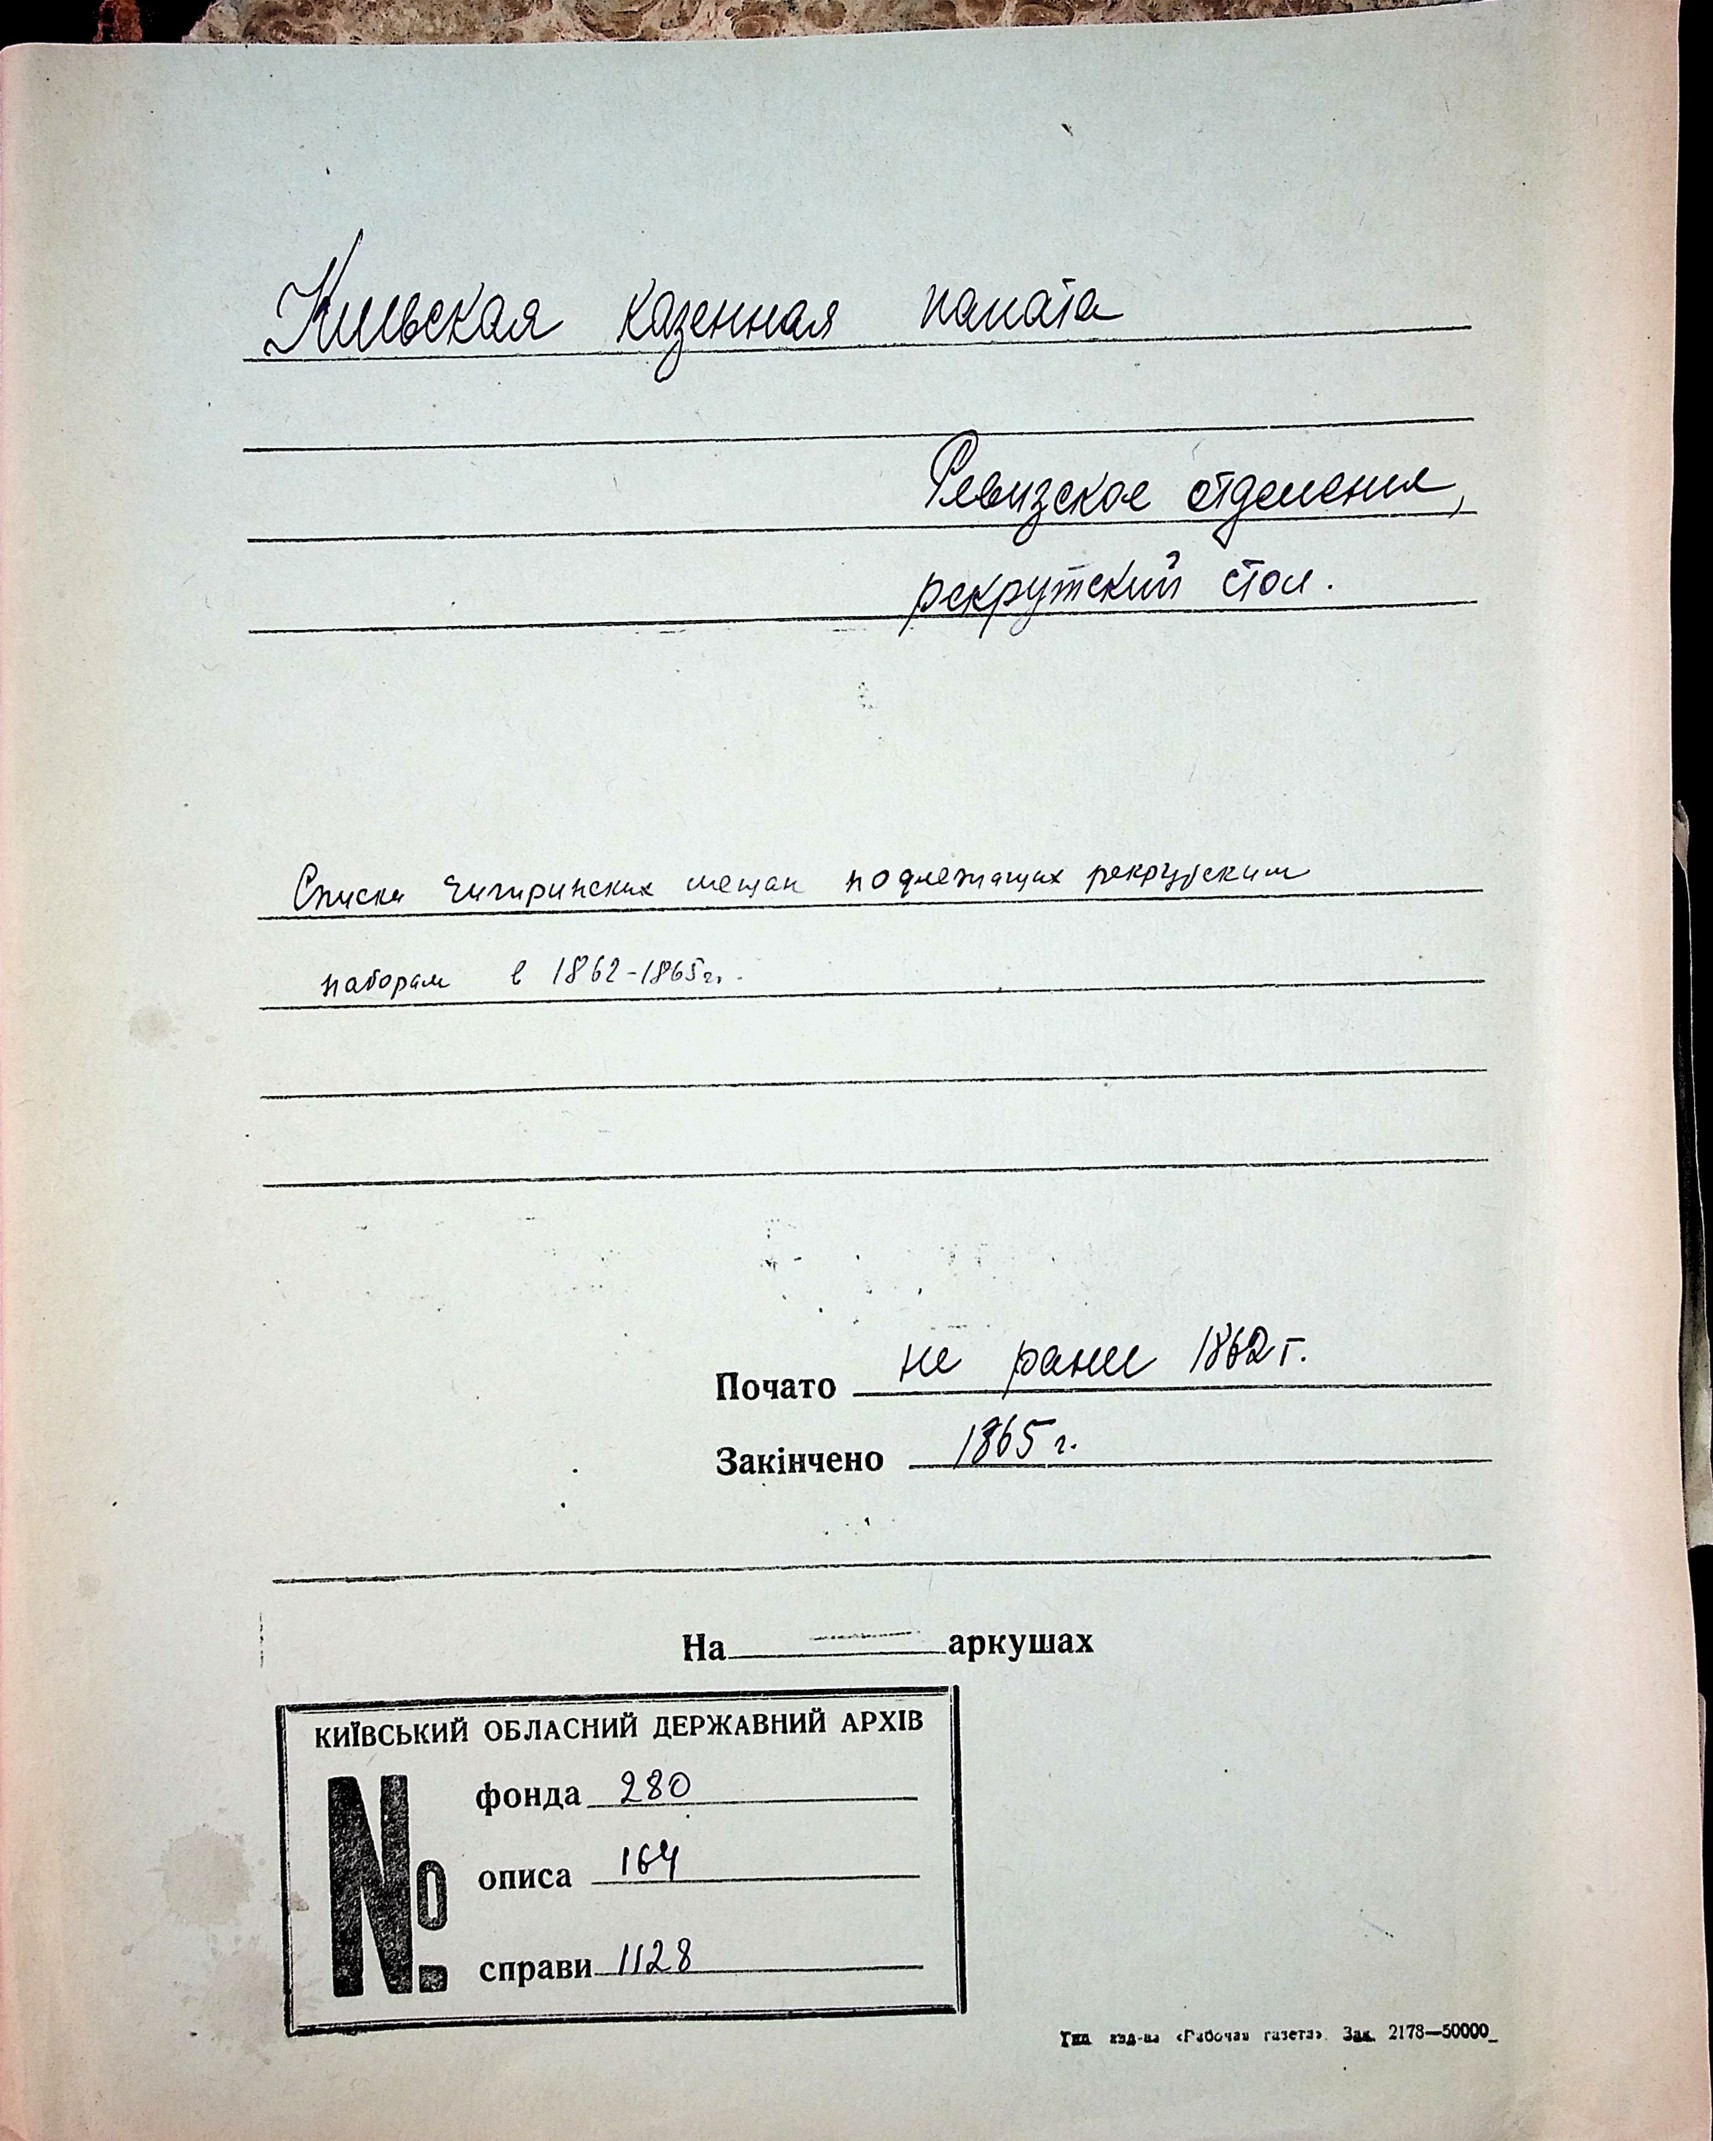 Киевская казенная палата
Ревизское отделения,
рекрутский стол.
Списки чигиринских мещан подлежащих рекрутским
наборам в 1862-1865 гг.
Почато не ранее 1862 г.
Закінчено 1865 г.
На аркушах
КИЇВСЬКИЙ ОБЛАСНИЙ ДЕРЖАВНИЙ АРХІВ
№
фонда 280
описа 164
справи 1128
Тип. изд-ва «Рабочая газета». Зак. 2178—50000